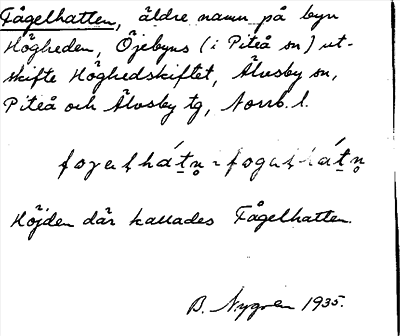 Fågelhatten, äldre namn på byn
Högheden, Öjebyns (i Piteå sn) ut-
skifte Höghedskiftet, Älvsby sn,
Piteå och Älvsby tg, Norrb. l.
Höjden där kallades Fågelhatten.
B. Nygren 1935.